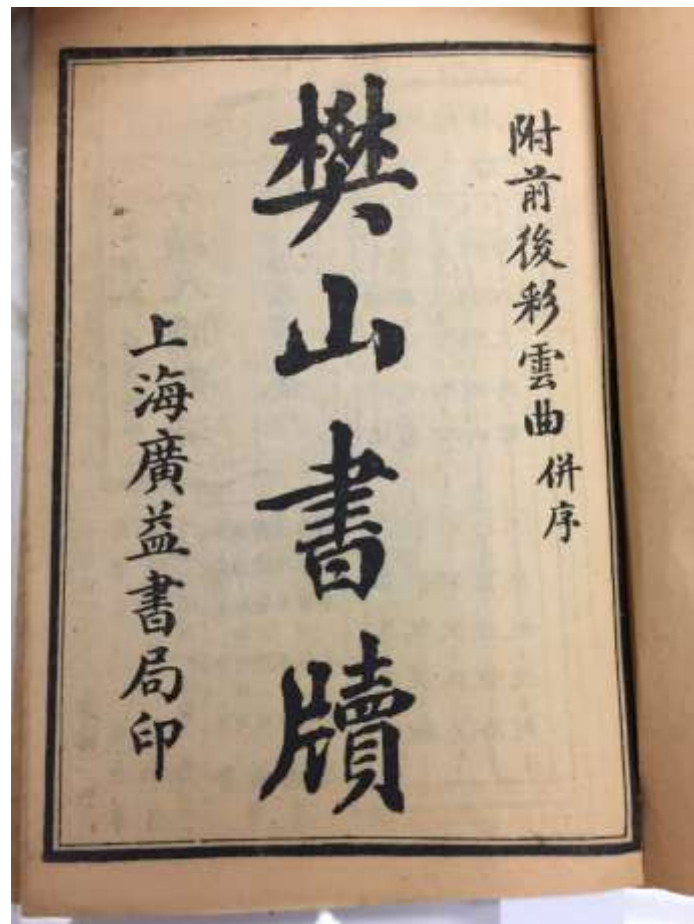 附前後彩雲曲併序
樊山書牘
上海廣益書局印